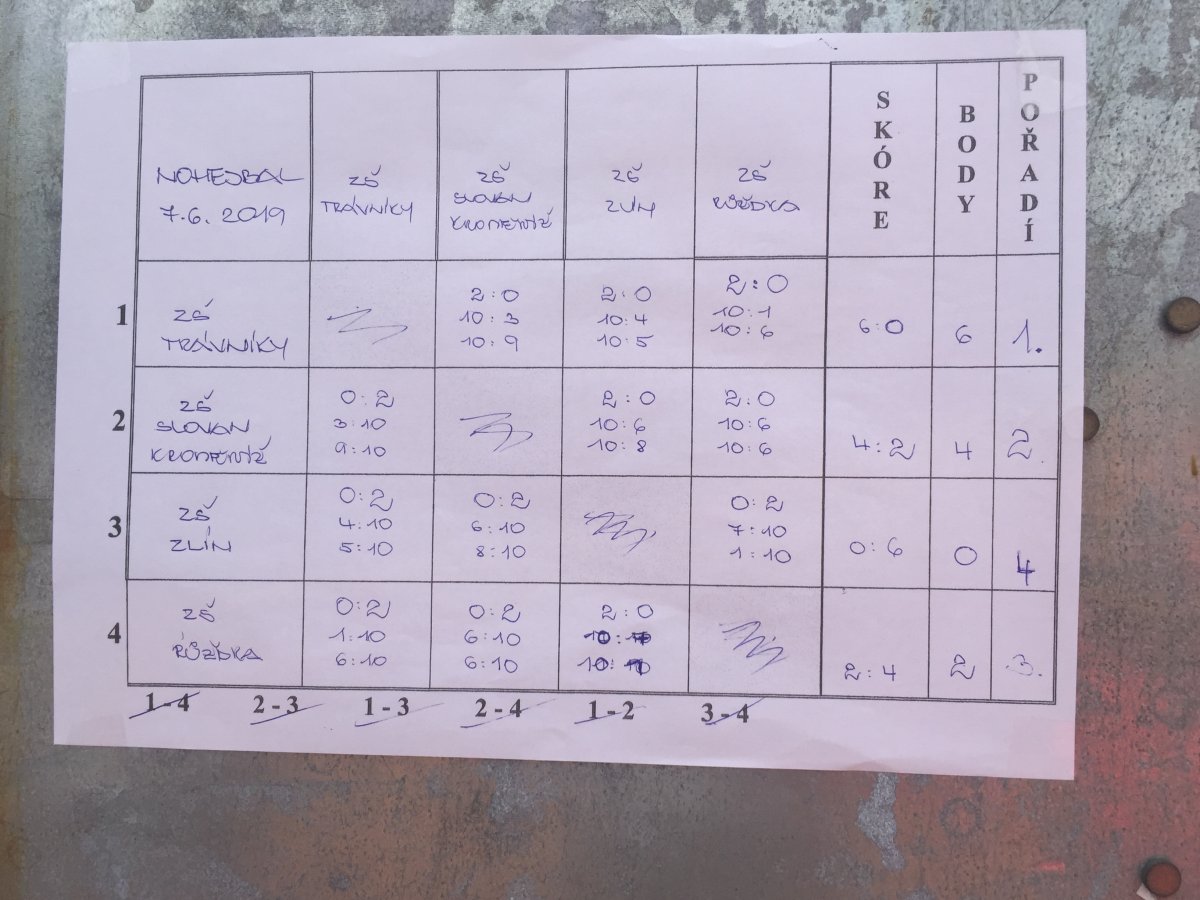 NOHEJBAL
7.6. 2019
ZŠ
TRÁVNÍKY
ZŠ
SLOVAN
KROMĚŘÍŽ
ZŠ
ZLÍN
ZŠ
RŮŽĎKA
SKÓRE
BODY
POŘADÍ
1
ZŠ
TRÁVNÍKY
2:0
10:3
10:9
2:0
10:4
10:5
2:0
10:1
10:6
6:0
6
1.
2
ZŠ
SLOVAN
KROMĚŘÍŽ
0:2
3:10
9:10
2:0
10:6
10:8
2:0
10:6
10:6
4:2
4
2
3
ZŠ
ZLÍN
0:2
4:10
5:10
0:2
6:10
8:10
0:2
7:10
1:10
0:6
0
4
4
ZŠ
RŮŽĎKA
0:2
1:10
6:10
0:2
6:10
6:10
2:0
2:4
2
3.
1-4 2-3 1-3 2-4 1-2 3-4